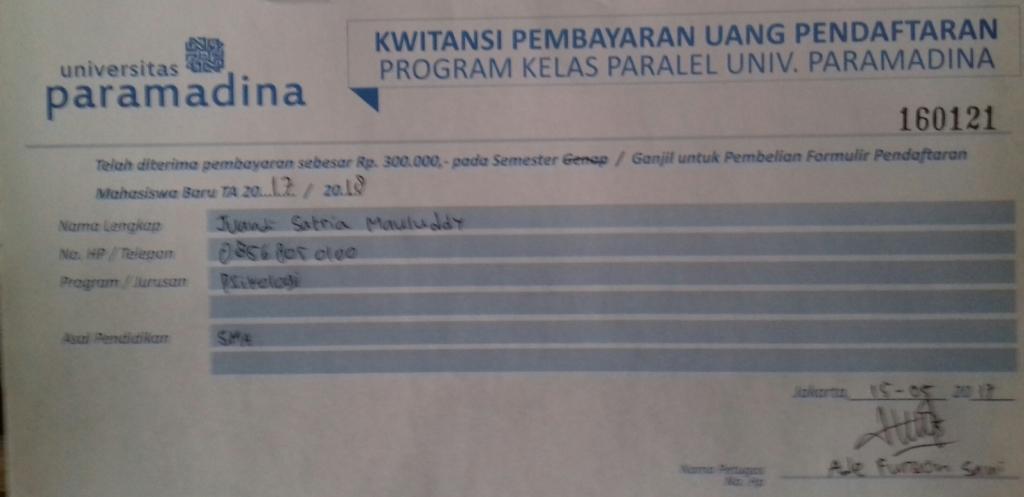 universitas
paramadina
KWITANSI PEMBAYARAN UANG PENDAFTARAN
PROGRAM KELAS PARALEL UNIV. PARAMADINA
160121
Telah diterima pembayaran sebesar Rp. 300.000,- pada Semester Genap / Ganjil untuk Pembelian Formulir Pendaftaran
Mahasiswa Baru TA 20...17 / 20.18
Nama Lengkap Satria Mauluddy
No. HP / Telepon
Program / Jurusan Psikologi
Asal Pendidikan SMA
Jakarta, 15-05 2017
Nama Petugas Ade
No. Hp